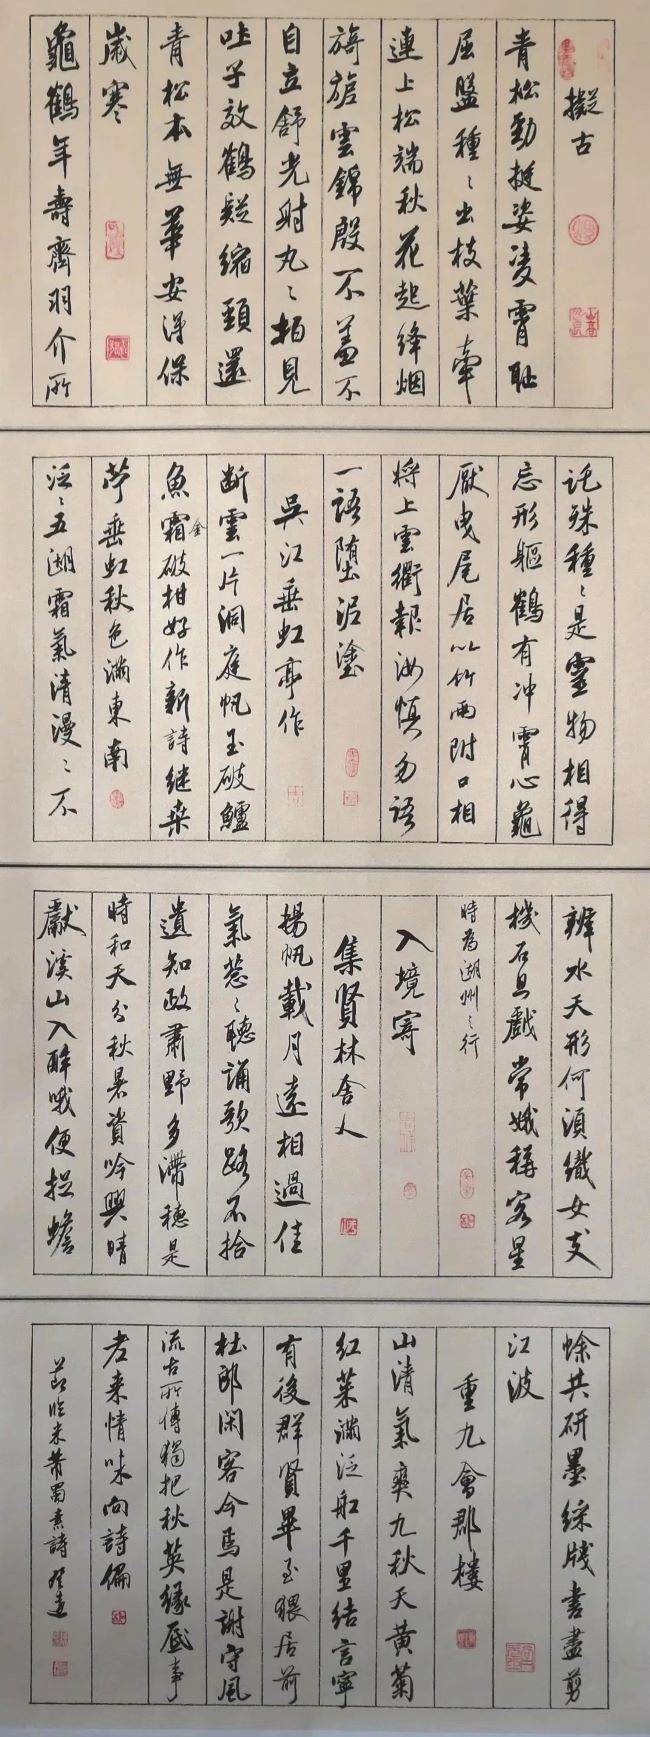 擬古
青松勁挺姿凌霄恥
屈盤種〻出枝葉牽
連上松端秋花起絳烟
旖旎雲錦殷不羞不
自立舒光射丸〻柏見
吐子效鶴疑縮頸還
青松本無華安得保
歲寒
龜鶴年壽齊羽介所
託殊種〻是靈物相得
忘形軀鶴有冲霄心龜
厭曳尾居以竹兩附口相
將上雲衢報汝慎勿語
一語墮泥塗
吳江垂虹亭作
斷雲一片洞庭帆玉破鱸
魚霜金破柑好作新詩継桑
苧垂虹秋色滿東南
泛〻五湖霜氣清漫〻不
辨水天形何須織女支
機石且戲常娥稱客星
時為湖州之行
入境寄
集賢林舍人
揚帆載月遠相過佳
氣葱〻聽誦歌路不拾
遺知政肅野多滯穗是
時和天分秋暑資吟興晴
獻溪山入醉哦便捉蟾
蜍共研墨綵牋書盡剪
江波
重九會郡樓
山清氣爽九秋天黄菊
紅茱滿泛船千里結言寧
有後群賢畢至猥居前
杜郎閑客今焉是謝守風
流古所傳獨把秋英緣底事
老来情味向詩偏
節临米芾蜀素詩